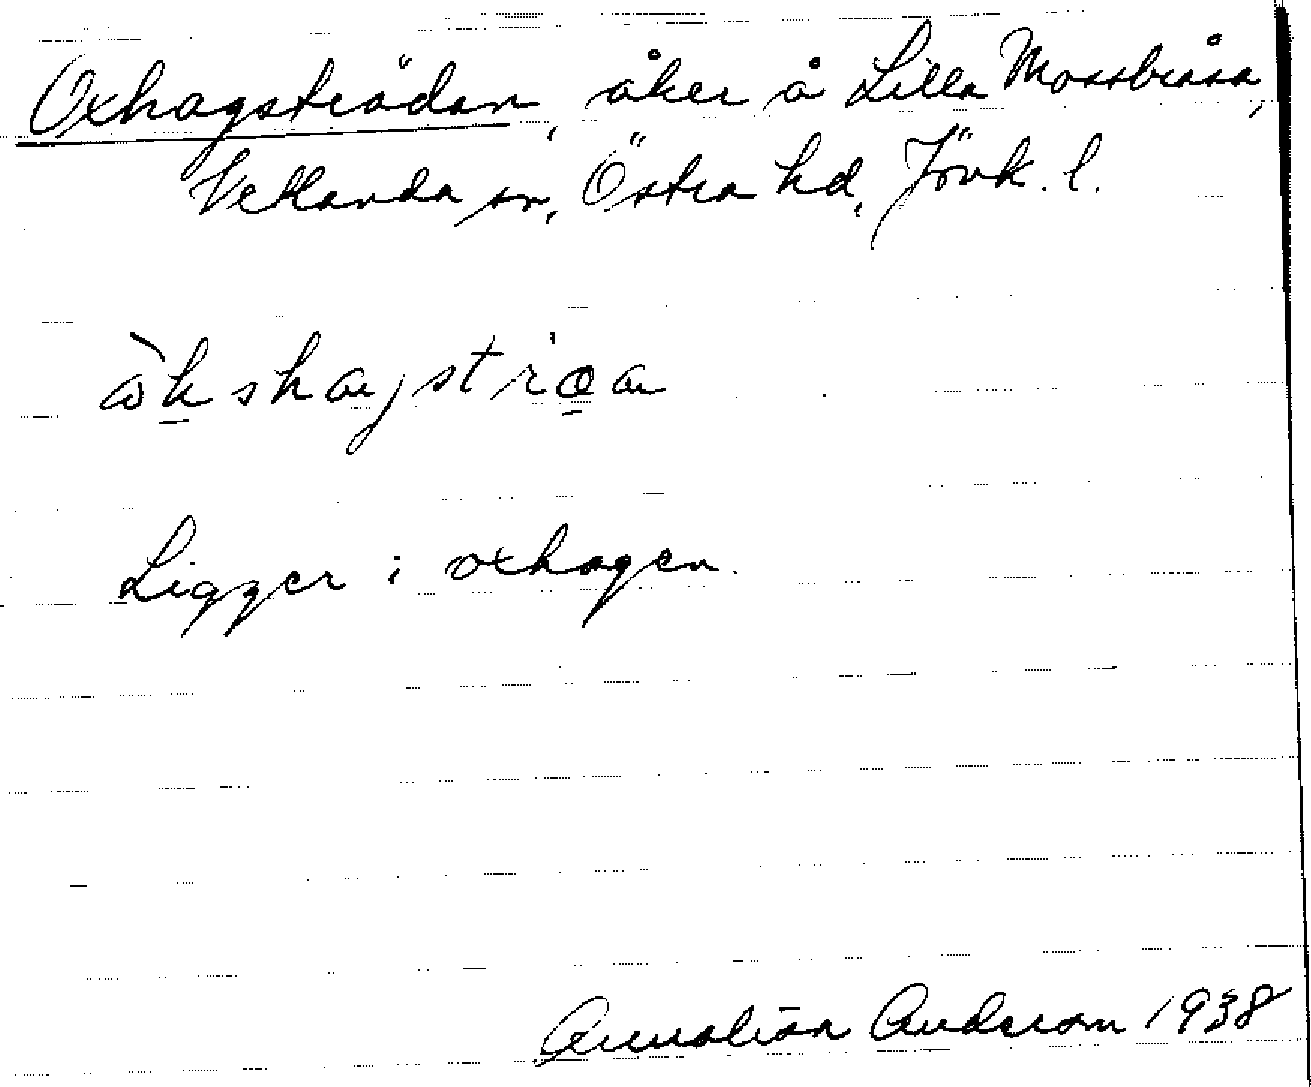 Oxhagsträdan, åker å Lilla Mossbråna,
Vetlanda sn, Östra hd, Jönk. l.
Ligger i oxhagen.
Andersson 1938